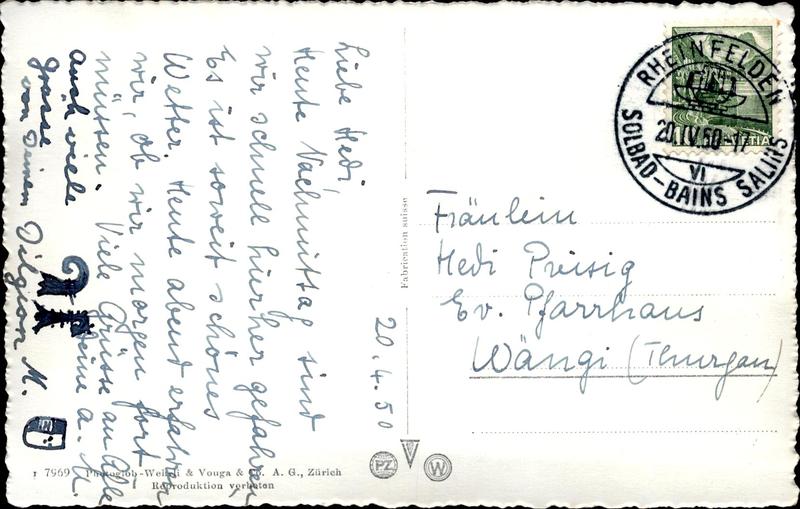 Liebe Hedi,
Heute Nachmittag sind
wir schnell hierher gefahren
Es ist soweit schönes
Wetter. Heute abend erfahren
wir, ob wir morgen fort
müssen. Viele Grüsse an Alle
Deine a. M.
auch viele
grüsse
von Deinem M.
20.4.50
Fabrication suisse
RHEINFELDEN
20.IV.50-17
VI
SOLBAD-BAINS SALINS
HELVETIA
Fräulein
Hedi Preisig
Ev. Pfarrhaus
Wängi (Thurgau)
7969 Photoglob-Wehrli & Vouga & Co. A. G., Zürich
Reproduktion verboten
PZ
W